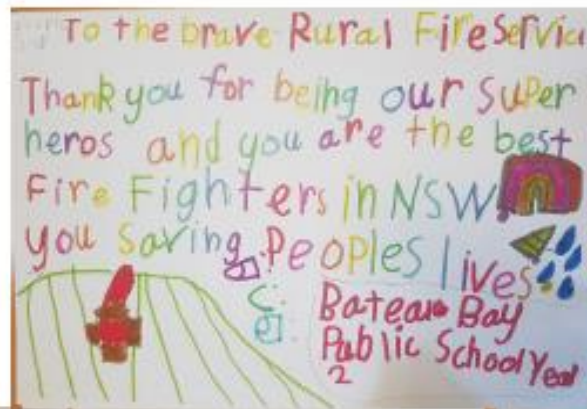 To the brave Rural Fire Servic
Thank you for being our super
heros and you are the best
Fire Fighters in NSW.
you saving Peoples lives
Bateau Bay
Public School Year
2